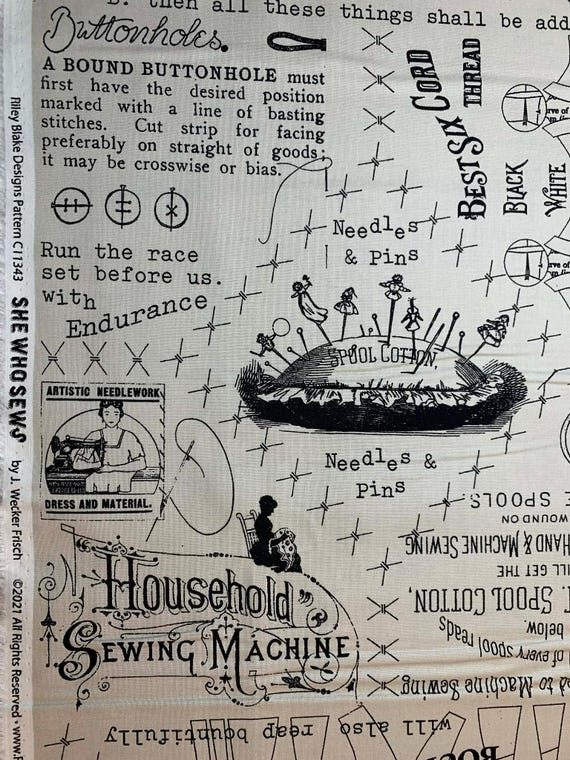 D. then all these things shall be add
Buttonholes.
A BOUND BUTTONHOLE must
first have the desired position
marked with a line of basting
stitches. Cut strip for facing
preferably on straight of goods;
it may be crosswise or bias.
BEST SIX CORD
THREAD
BLACK
WHITE
Run the race
set before us.
with
Endurance
Needles
& Pins
SPOOL COTTON,
Needles &
Pins
ARTISTIC NEEDLEWORK
DRESS AND MATERIAL.
Household
SEWING MACHINE
SPOOLS
WOUND ON
HAND & MACHINE SEWING
ILL GET THE
SPOOL COTTON,
below.
of every spool reads
to Machine Sewing
will also reap bountifully
Riley Blake Designs Pattern C11343 SHE WHO SEWS by J. Wecker Frisch ©2021 All Rights Reserved • www.